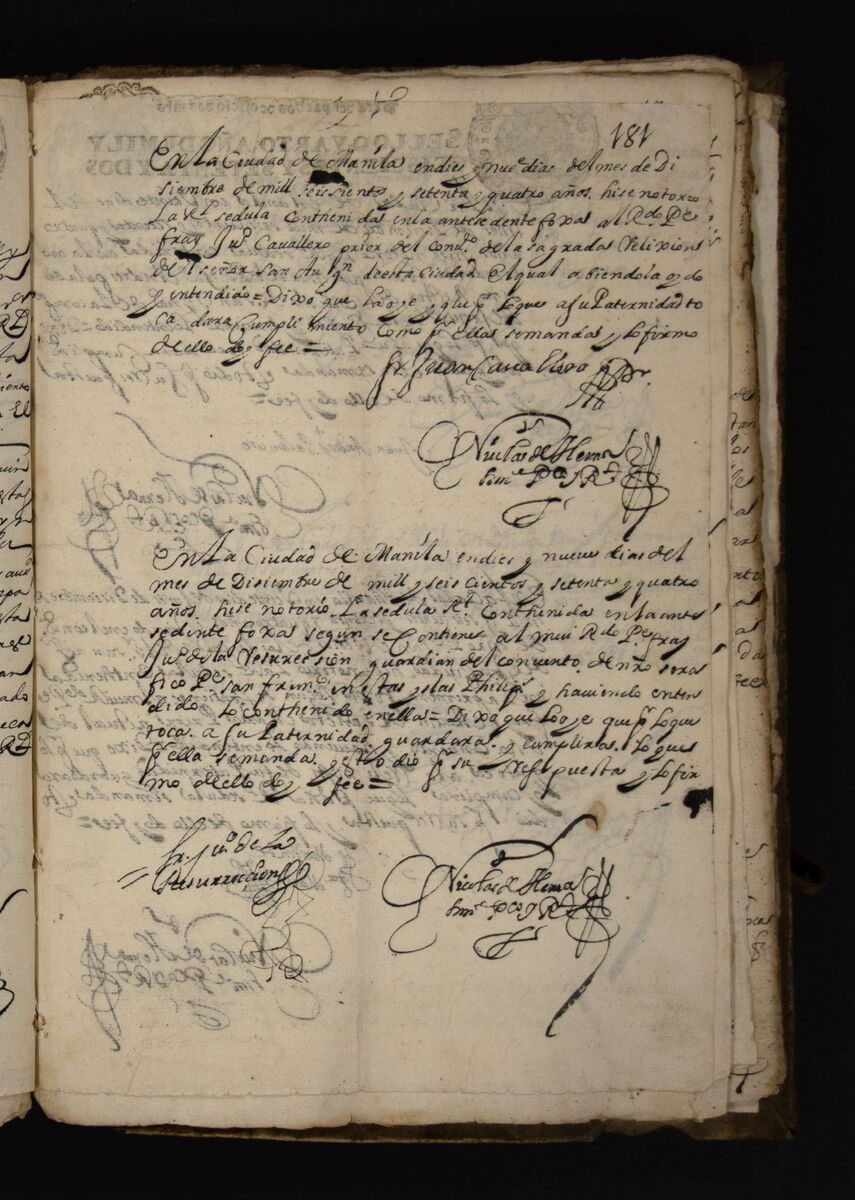 181
En la Ciudad de Manila en dies y nuebe dias del mes de Di
siembre de mill seissientos y setenta y quatro años. hise notorio
La Rl sedula Conthenidas en la antesedente foxas al Rdo. Pe
fray Juo Cavallero prior del convto. de las sagradas Relixions
del señor san Augn de esta Ciudad el qual abiendola oydo
y entendido = Dixo que la oye y que pr lo que a su Paternidad to
ca dara Cumplimiento como pr ellas se mandas y lo firmo
de ello doy fee =
fr. Juan Cavallero Por
Nicolas de Herra
Smo Pco y Rl
En la Ciudad de Manila en dies y nueve dias del
mes de Disiembre de mill y seis cientos y setenta y quatro
años. hise notorio La sedula Rl. Conthenida en la ante
sedente foxas segun se Contiene al mui Rdo Pe fray
Juo de la Resuression guardian del convento de nro sera
fico Pe san franco en estas yslas Philips y haviendo enten
dido lo conthenido en ellas = Dixo que lo oye que pr lo que
toca a su Paternidad guardara y cumplira lo que
pr ella se manda y esto dio pr su Respuesta y lo fir
mo de ello doy fee =
fr. Juo de La
Resurreccion
Nicolas de Herra
Smo Pco y Rl